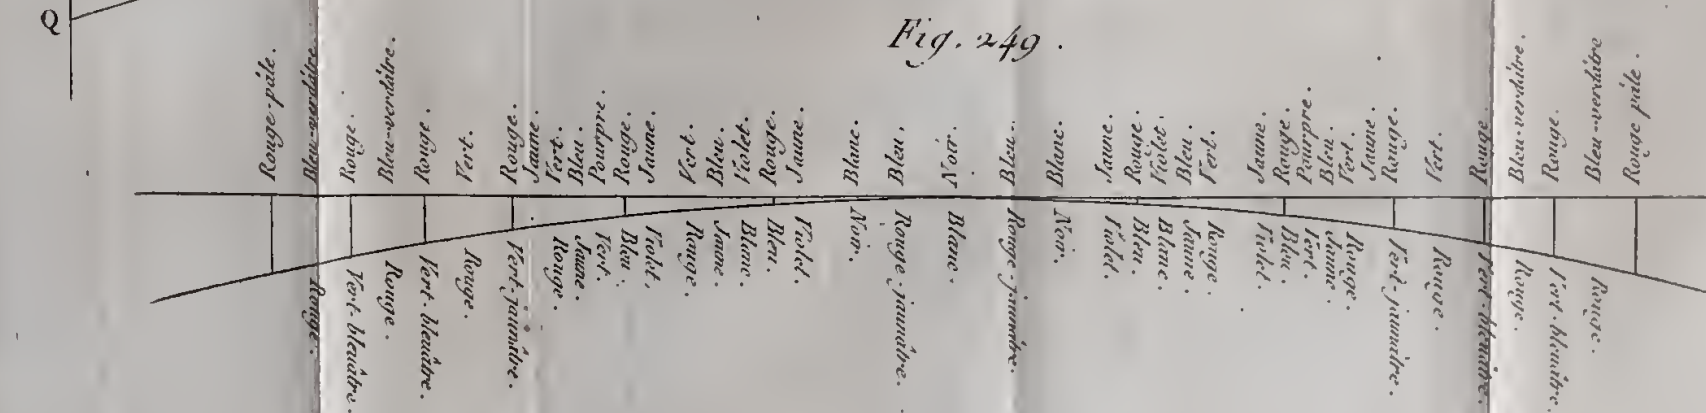 Q
Fig. 249.
Rouge-pâle.
Bleu-verdâtre.
Rouge.
Bleu-verdâtre.
Rouge.
Vert.
Rouge.
Jaune.
Vert.
Bleu.
Pourpre.
Rouge.
Jaune.
Vert.
Bleu.
Violet.
Rouge.
Jaune.
Blanc.
Bleu.
Noir.
Bleu.
Blanc.
Jaune.
Rouge.
Violet.
Bleu.
Vert.
Jaune.
Rouge.
Pourpre.
Bleu.
Vert.
Jaune.
Rouge.
Vert.
Rouge.
Bleu-verdâtre.
Rouge.
Bleu-verdâtre
Rouge pâle.
Rouge.
Vert-bleuâtre.
Rouge.
Vert-bleuâtre.
Rouge.
Vert-jaunâtre.
Rouge.
Jaune.
Vert.
Bleu.
Violet.
Rouge.
Jaune.
Blanc.
Bleu.
Violet.
Noir.
Rouge-jaunâtre.
Blanc.
Rouge-jaunâtre.
Noir.
Violet.
Bleu.
Blanc.
Jaune.
Rouge.
Violet.
Bleu.
Vert.
Jaune.
Rouge.
Vert-jaunâtre.
Rouge.
Vert-bleuâtre.
Rouge.
Vert-bleuâtre.
Rouge.